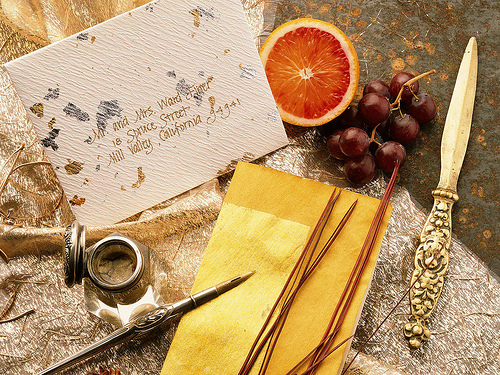 Mr and Mrs. Ward Fisher
18 Spruce Street
Mill Valley, California 94941